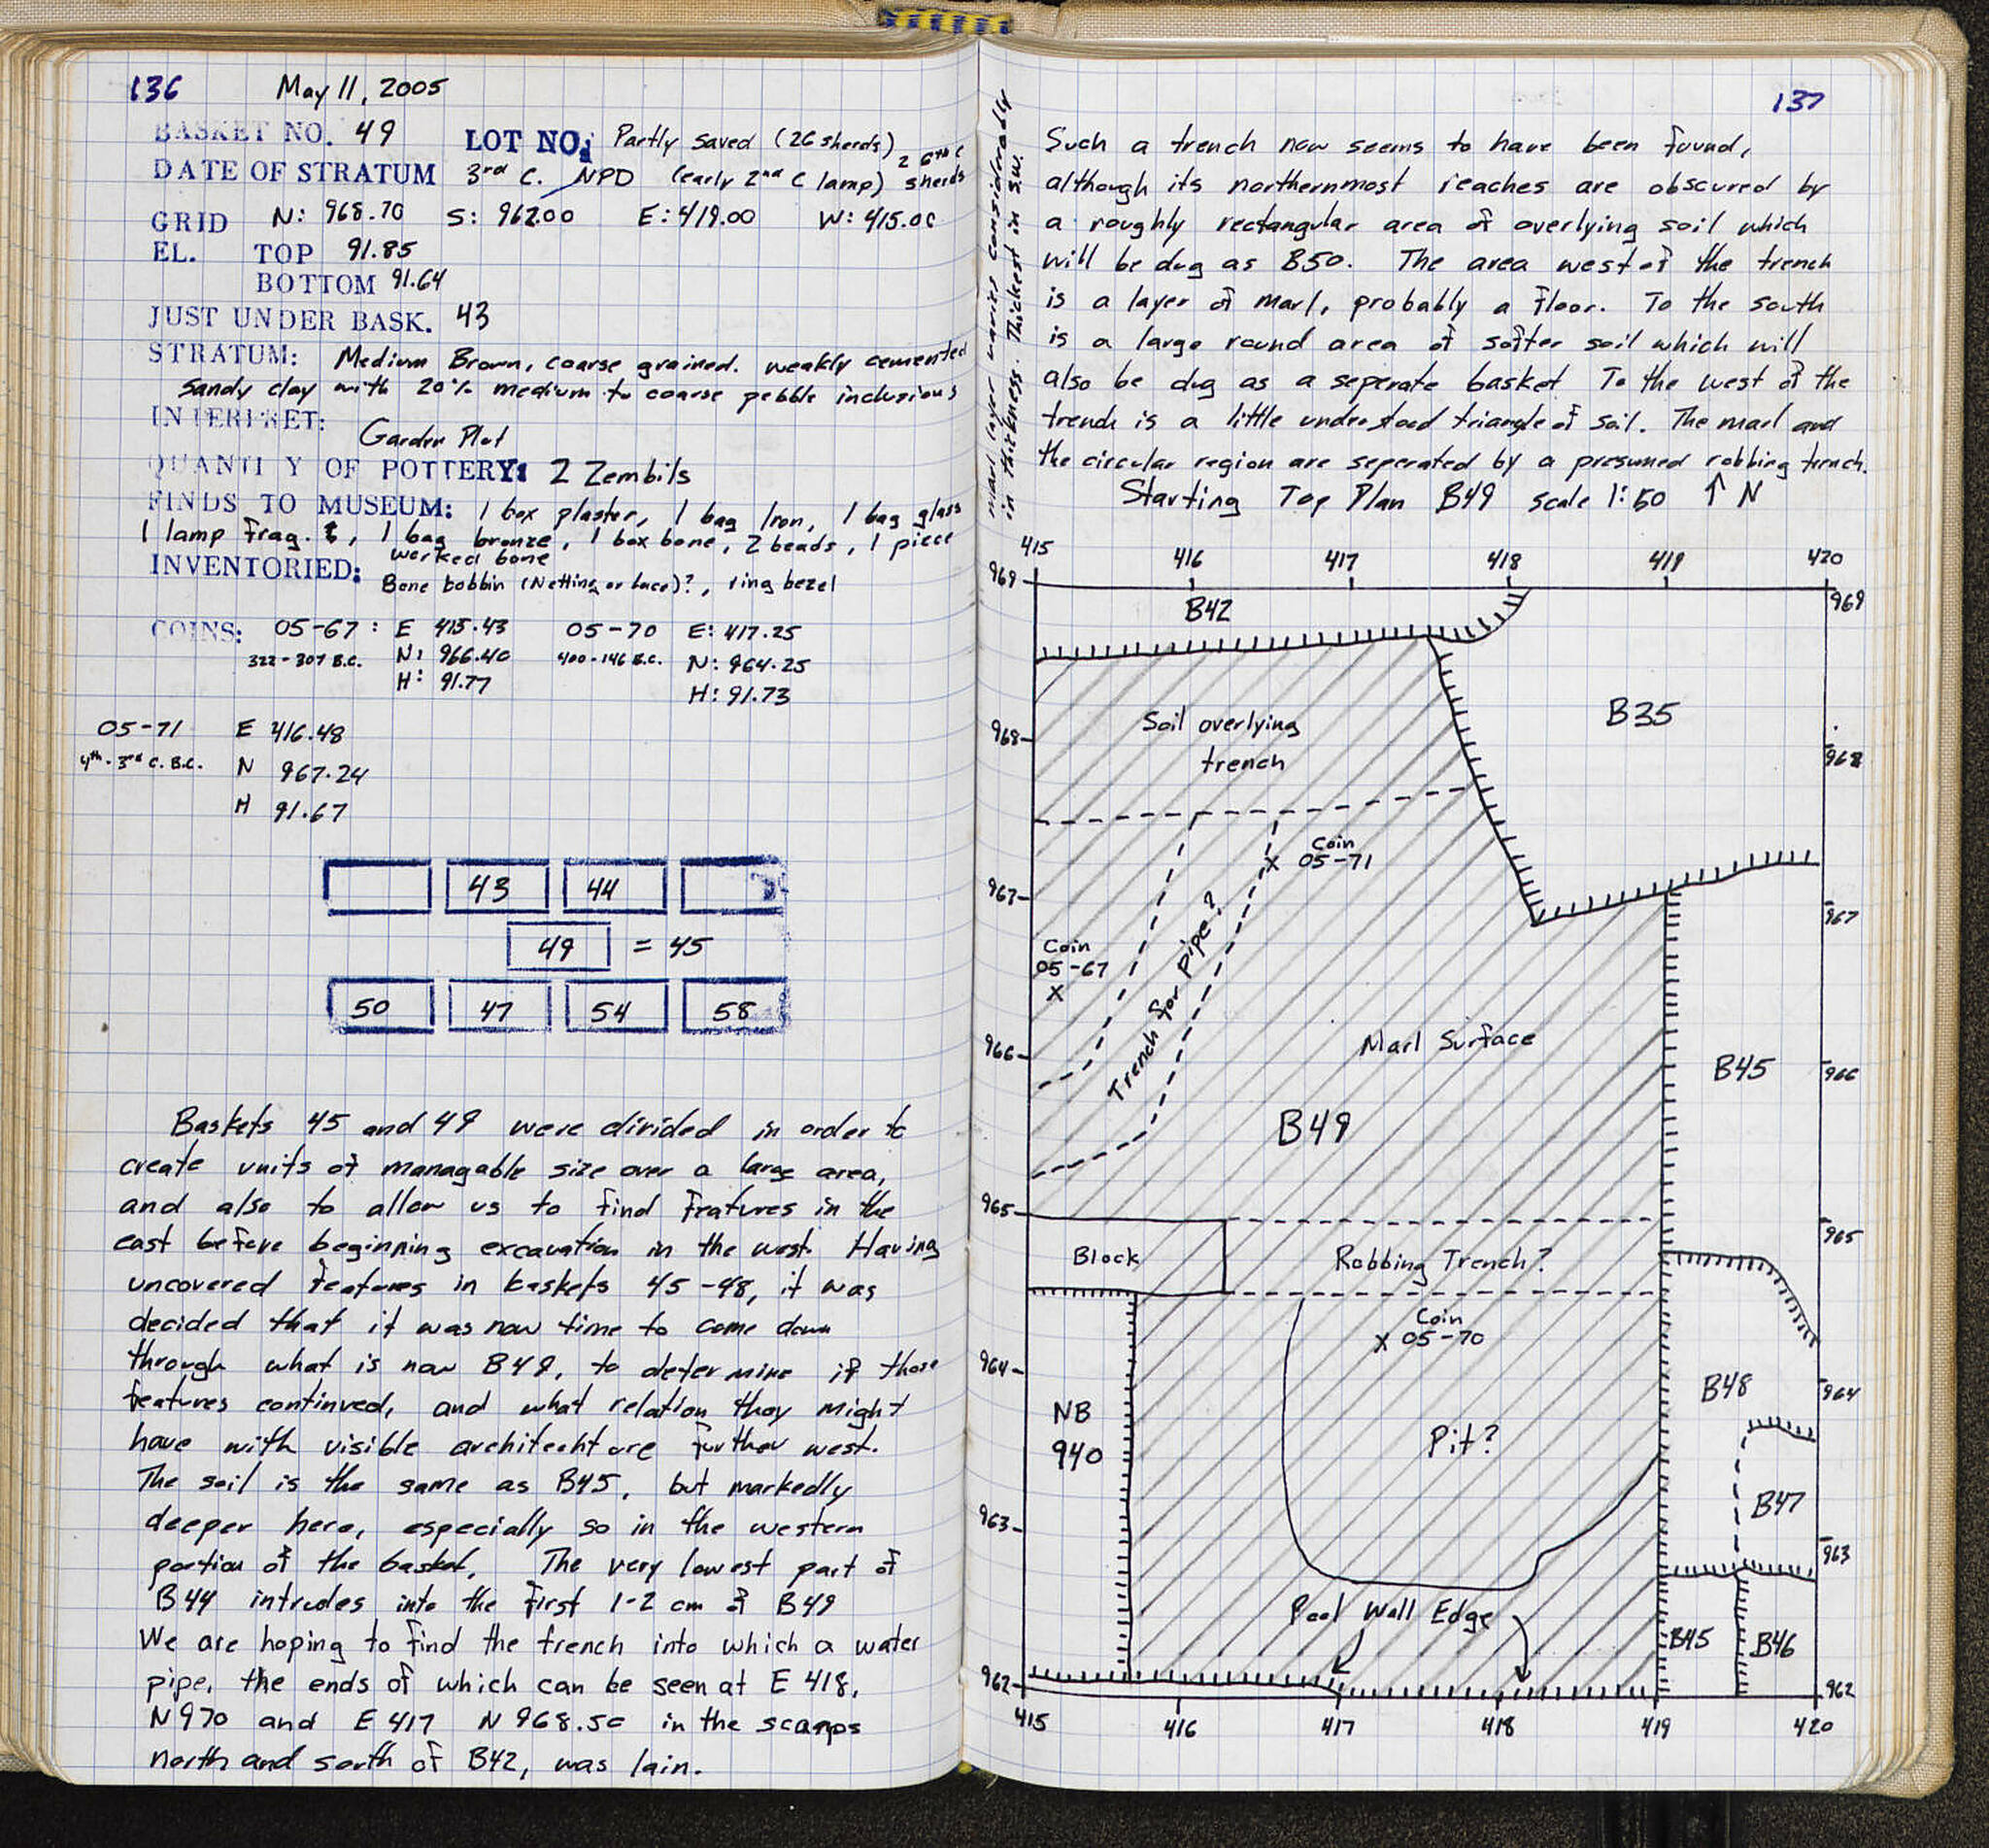 136 May 11, 2005
BASKET NO. 49 LOT NO. Partly saved (26 sherds)
DATE OF STRATUM 3rd C. NPD (early 2nd C lamp) 2 6th C sherds
GRID N: 968.70 S: 962.00 E: 419.00 W: 415.00
EL. TOP 91.85
BOTTOM 91.64
JUST UNDER BASK. 43
STRATUM: Medium Brown, coarse grained. weakly cemented
sandy clay with 20% medium to coarse pebble inclusions
INTERPRET: Garden Plot
QUANTITY OF POTTERY: 2 Zembils
FINDS TO MUSEUM: 1 box plaster, 1 bag Iron, 1 bag glass
1 lamp frag., 1 bag bronze, 1 box bone, 2 beads, 1 piece
worked bone
INVENTORIED: Bone bobbin (Netting or Lace)?, ring bezel
COINS: 05-67: E 415.43 05-70 E: 417.25
322-307 B.C. N: 966.40 400-146 B.C. N: 964.25
H: 91.77 H: 91.73
05-71 E 416.48
4th-3rd C. B.C. N 967.24
H 91.67
43 44
49 = 45
50 47 54 58
Baskets 45 and 49 were divided in order to
create units of managable size over a large area,
and also to allow us to find features in the
east before beginning excavation in the west. Having
uncovered features in baskets 45-48, it was
decided that it was now time to come down
through what is now B49, to determine if those
features continued, and what relation they might
have with visible architechture further west.
The soil is the same as B45, but markedly
deeper here, especially so in the western
portion of the basket. The very lowest part of
B44 intrudes into the first 1-2 cm of B49
We are hoping to find the trench into which a water
pipe, the ends of which can be seen at E 418,
N970 and E 417 N 968.50 in the scarps
north and south of B42, was lain.
137
marl layer varies considerably
in thickness. Thickest in S.W.
Such a trench now seems to have been found,
although its northernmost reaches are obscured by
a roughly rectangular area of overlying soil which
will be dug as B50. The area west of the trench
is a layer of marl, probably a floor. To the south
is a large round area of softer soil which will
also be dug as a seperate basket. To the west of the
trench is a little understood triangle of soil. The marl and
the circular region are seperated by a presumed robbing trench.
Starting Top Plan B49 scale 1:50 ↑ N
415 416 417 418 419 420
969 969
B42
B35
Soil overlying
trench
968 968
Coin
05-71
X
967 967
Coin
05-67
X
Trench for pipe?
966 966
Marl Surface
B45
B49
965 965
Block
Robbing Trench?
Coin
X 05-70
964 964
B48
NB
940
Pit?
B47
963 963
Pool Wall Edge
B45 B46
962 962
415 416 417 418 419 420